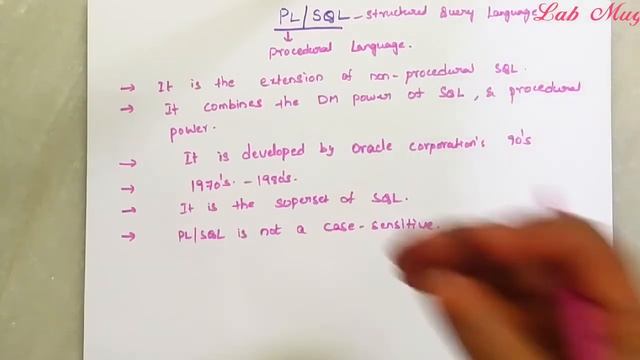 PL/SQL - Structured Query Language
Lab Mug
Procedural Language.
→ It is the extension of non-procedural SQL.
→ It combines the DM power of SQL, & procedural
power.
→ It is developed by Oracle corporation's 90's
→ 1970's. - 1980's.
→ It is the superset of SQL.
→ PL/SQL is not a case-sensitive.